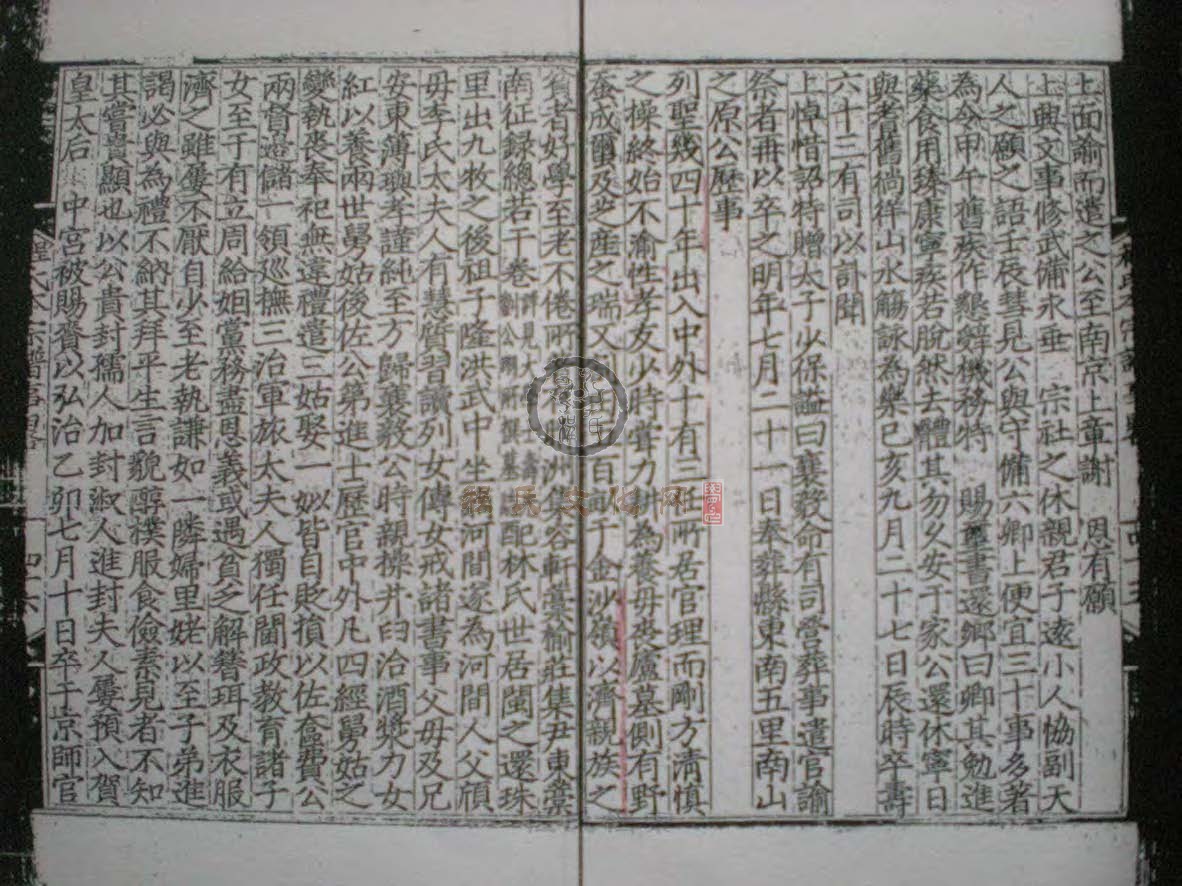 上面諭而遣之公至南京上章謝 恩有願
上興文事修武備永垂 宗社之休親君子遠小人恊副天
人之願之語壬辰彗見公與守備六卿上便宜三十事多著
為令甲午舊疾作懇辭機務特 賜璽書還鄉曰卿其勉進
藥食用臻康寧疾若脫然去體其勿久安于家公還休寧日
與耆舊徜徉山水觴詠為樂己亥九月二十七日辰時卒壽
六十三有司以訃聞
上悼惜詔特贈太子少保謚曰襄毅命有司營葬事遣官諭
祭者再以卒之明年七月二十一日奉葬縣東南五里南山
之原公歷事
列聖幾四十年出入中外十有三任所居官理而剛方清慎
之操終始不渝性孝友少時嘗力耕為養母喪廬墓側有野
蚕成璽及芝産之瑞又 田百畝于金沙嶺以濟親族之
貧者好學至老不倦所 洲集容軒藁榆莊集尹東藁
南征録總若干卷 詳見大 壽 劉公珝所撰墓 配林氏世居閩之還珠
里出九牧之後祖子隆洪武中坐 河間遂為河間人父頎
母李氏太夫人有慧質習讀列女傳女戒諸書事父母及兄
安東薄璵孝謹純至方歸襄毅公時親操井臼治酒漿力女
紅以養兩世舅姑後佐公弟進士歷官中外凡四經舅姑之
變執喪奉祀無違禮遣三姑娶一姒皆自貶損以佐奩費公
兩督 儲一領廵撫三治軍旅太夫人獨任閫政教育諸子
女至于有立周給姻黨務盡恩義或遇貧乏解簪珥及衣服
濟之雖屢不厭自少至老執謙如一隣婦里姥以至子弟進
謁必與為禮不納其拜平生言貌醇樸服食儉素見者不知
其嘗貴顯也以公貴封孺人加封淑人進封夫人屢預入賀
皇太后 中宮被賜賚以弘治乙卯七月十日卒于京師官